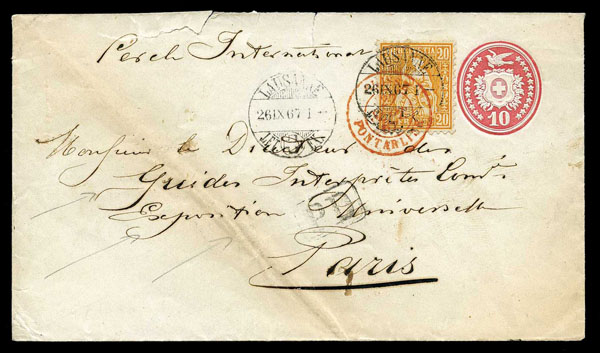 Cercle International
20
20
10
LAUSANNE
26 IX 67 1
LAUSANNE
26 IX 67 1
PONTARLIER
Monsieur le Directeur des
Guides Interprètes
Exposition Universelle
PD
Paris